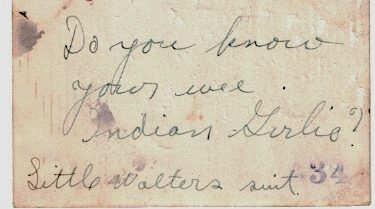 Do you know
your wee
indian Girlie?
Little Walters suit.
434